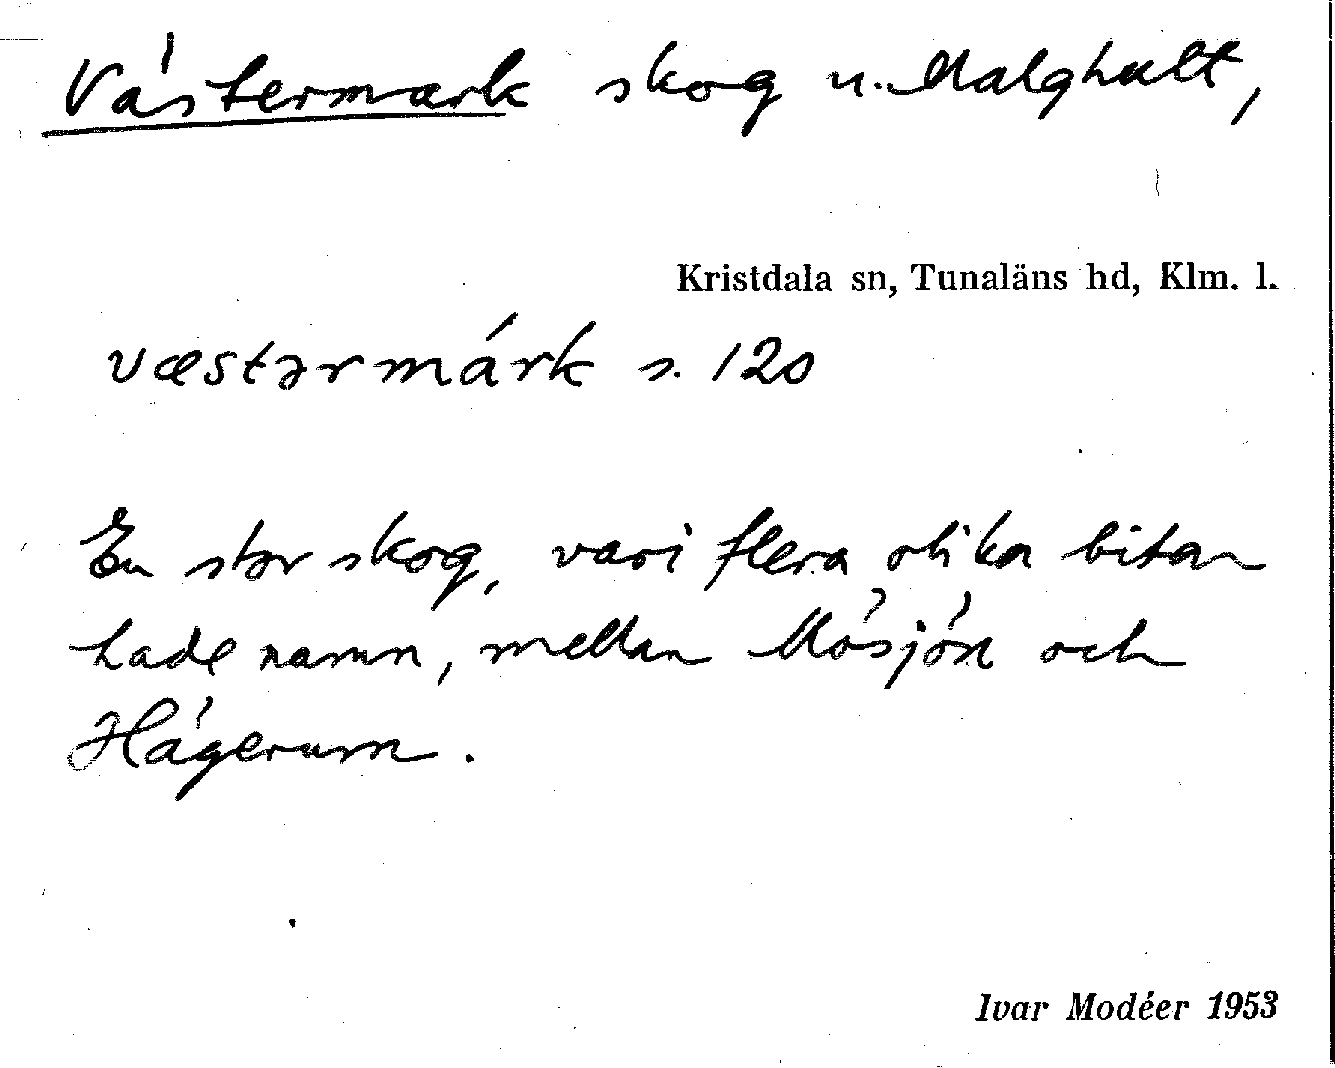 Västermark skog u. Malghult,
Kristdala sn, Tunaläns hd, Klm. l.
væstərmárk s. 120
En stor skog, vari flera olika bitar
hade namn, mellan Mösjön och
Hägerum.
Ivar Modéer 1953